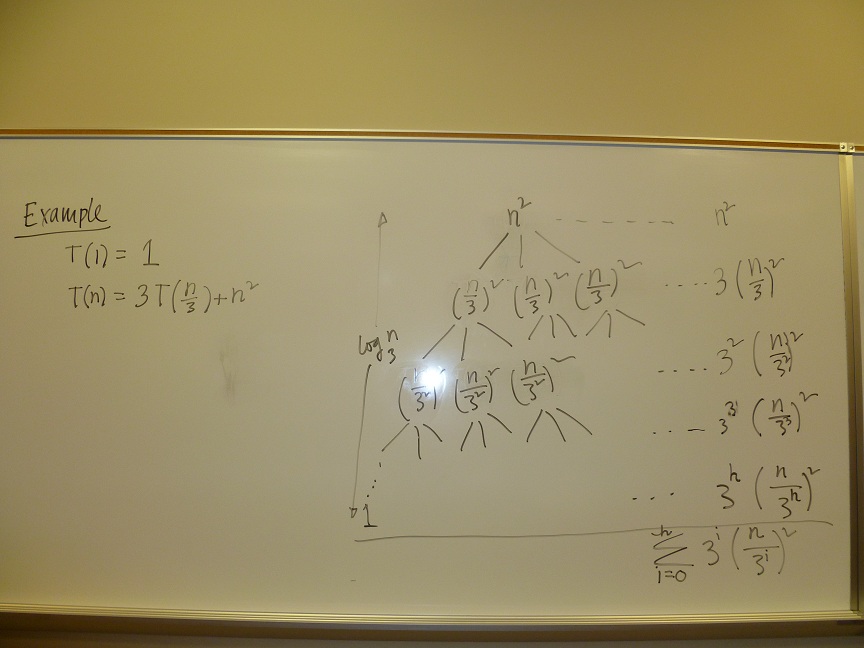 Example
T(1) = 1
T(n) = 3T(n/3) + n²
n² - - - - - - - n²
(n/3)² (n/3)² (n/3)² .... 3(n/3)²
log₃ n
(n/3²)² (n/3²)² (n/3²)² .... 3²(n/3²)²
... 3³(n/3³)²
1
... 3^h (n/3^h)²
∑_{i=0}^{h} 3^i (n/3^i)²